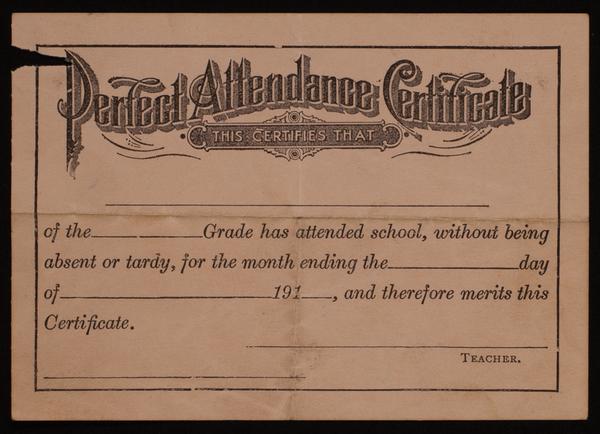 Perfect Attendance Certificate
THIS CERTIFIES THAT
of the Grade has attended school, without being
absent or tardy, for the month ending the day
of 191 , and therefore merits this
Certificate.
TEACHER.